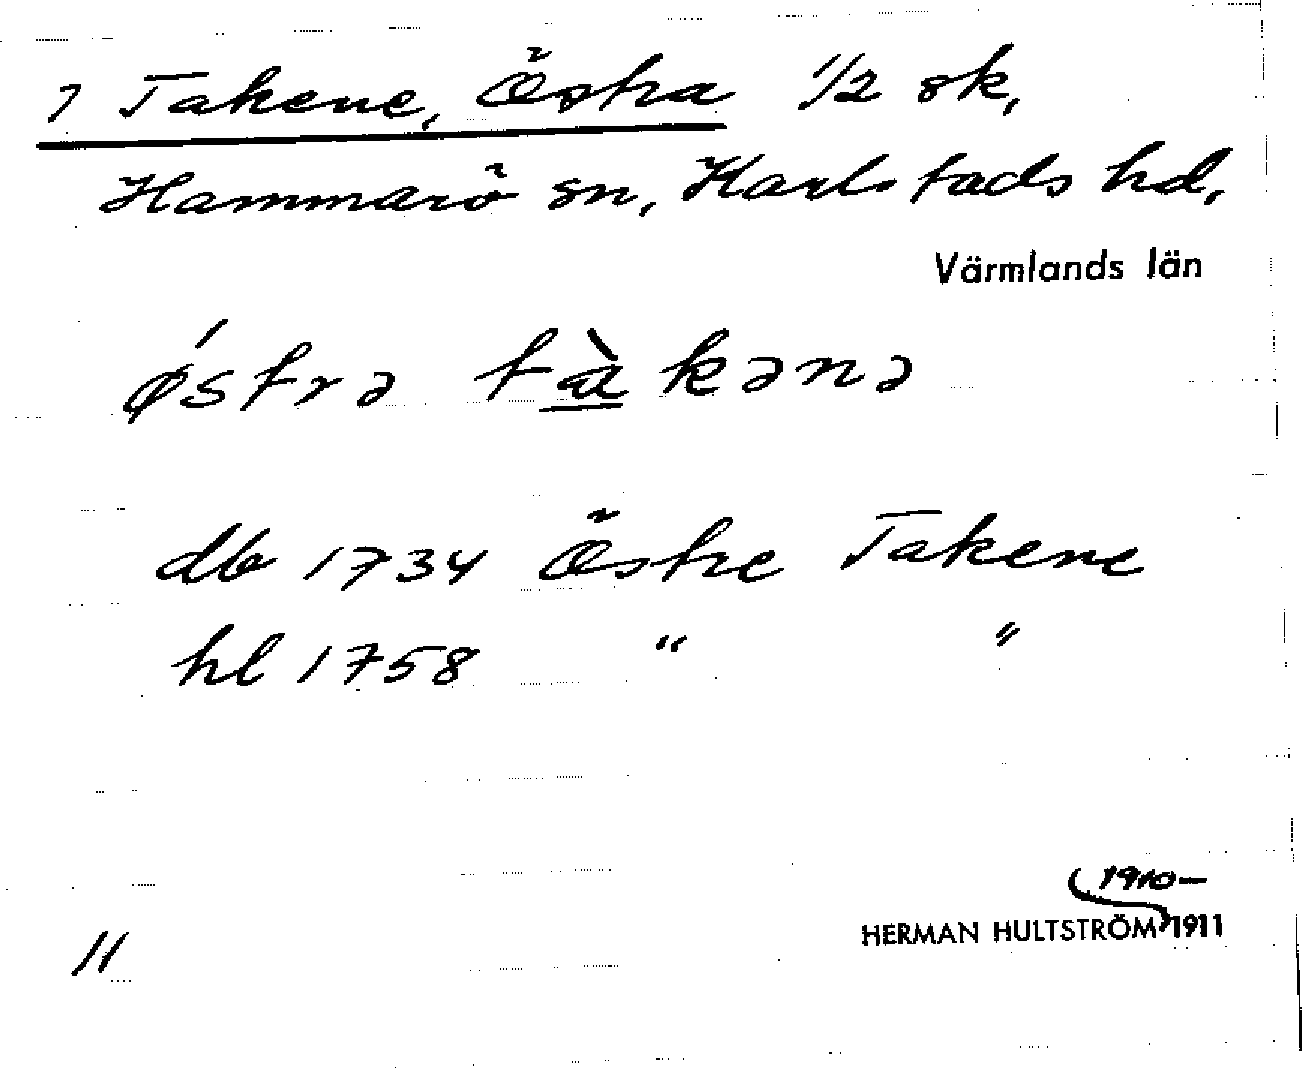 7 Takene, Östra 1/2 sk,
Hammarö sn, Karlstads hd,
Värmlands län
ǿstrə tàkənə
db 1734 Östre Takene
hl 1758 " "
1910–
HERMAN HULTSTRÖM 1911
11